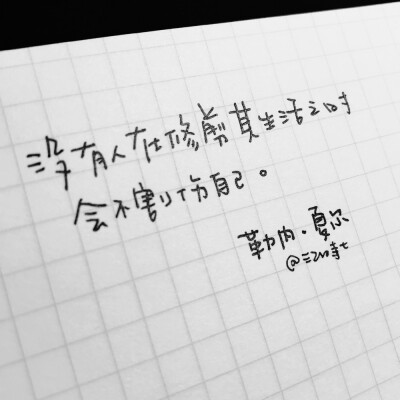 没有人在修剪其生活之时
会不割伤自己。
勒内·夏尔